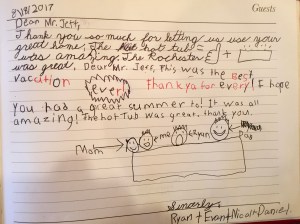 8/18/2017
Guests
Dear Mr. Jeff,
Thank you so much for letting us use your
great home. The hot tub =
was amazing. The Rochester
was great, Dear Mr. Jeff, this was the Best
vacation ever! thank ya for every! I hope
You had a great summer to! It was all
amazing! The hot tub was great, thank you.
Mom me Ryan Dad
Sincerely,
Ryan + Evan + Nicol + Daniel